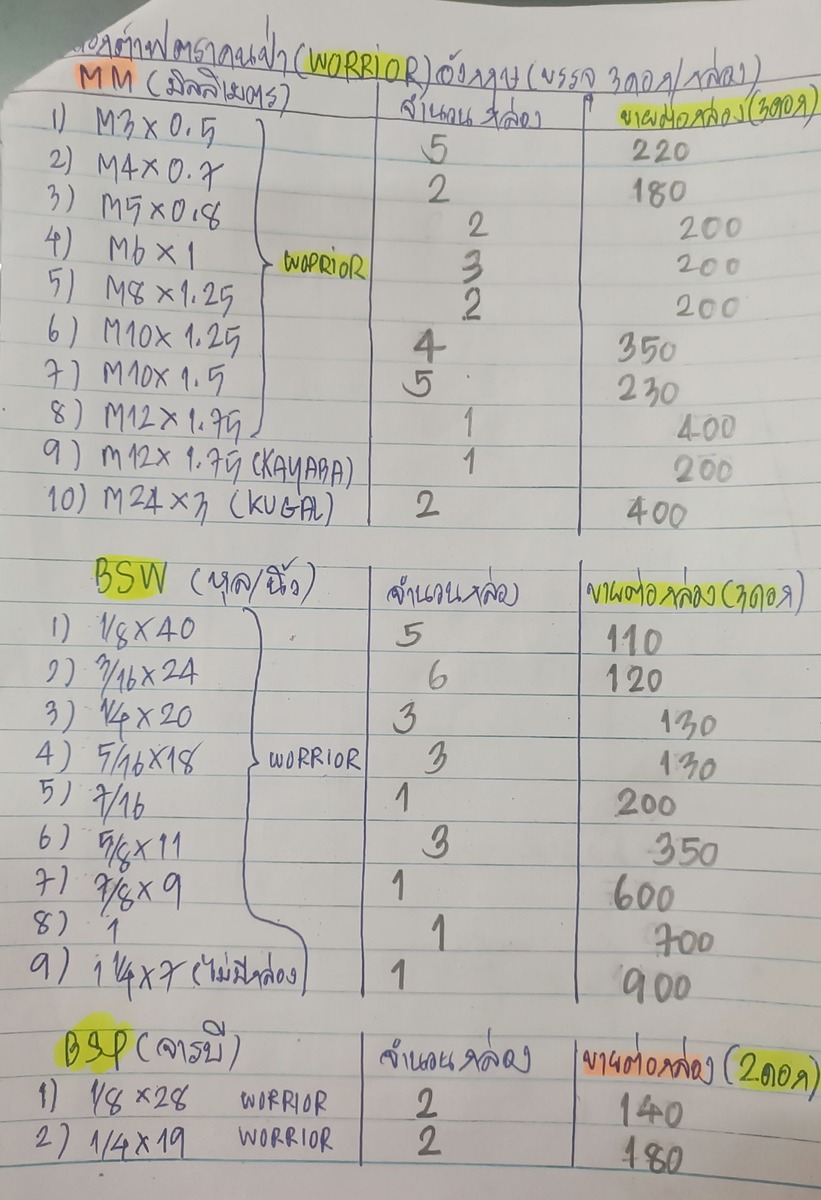 ดอกต๊าฟตราคนป่า (WORRIOR) อังกฤษ (บรรจุ 3ดอก/กล่อง)
MM (มิลลิเมตร) จำนวน กล่อง ขายต่อกล่อง (3ดอก)
1) M3 x 0.5 5 220
2) M4 x 0.7 2 180
3) M5 x 0.8 2 200
4) M6 x 1 WORRIOR 3 200
5) M8 x 1.25 2 200
6) M10 x 1.25 4 350
7) M10 x 1.5 5 230
8) M12 x 1.75 1 400
9) M12 x 1.75 (KAYABA) 1 200
10) M24 x 3 (KUGAL) 2 400
BSW (หุล/นิ้ว) จำนวนกล่อง ขายต่อกล่อง (3ดอก)
1) 1/8 x 40 5 110
2) 3/16 x 24 6 120
3) 1/4 x 20 3 130
4) 5/16 x 18 WORRIOR 3 130
5) 7/16 1 200
6) 5/8 x 11 3 350
7) 7/8 x 9 1 600
8) 1 1 700
9) 1 1/4 x 7 (ไม่มีกล่อง 1 900
BSP (จารบี) จำนวนกล่อง ขายต่อกล่อง (2ดอก)
1) 1/8 x 28 WORRIOR 2 140
2) 1/4 x 19 WORRIOR 2 180